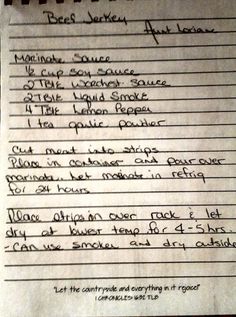 Beef Jerkey
Aunt Loriane
Marinate Sauce
½ cup soy sauce
2 TBLE Worchest. Sauce
2 TBLE Liquid Smoke
4 TBLE Lemon Pepper
1 tea garlic powder
Cut meat into strips
Place in container and pour over
marinate. Let marinate in refrig
for 24 hours
Place strips on over rack & let
dry at lowest temp for 4-5 hrs.
- CAN use smoker and dry outside
"Let the countryside and everything in it rejoice!"
1 CHRONICLES 16:32 TLB